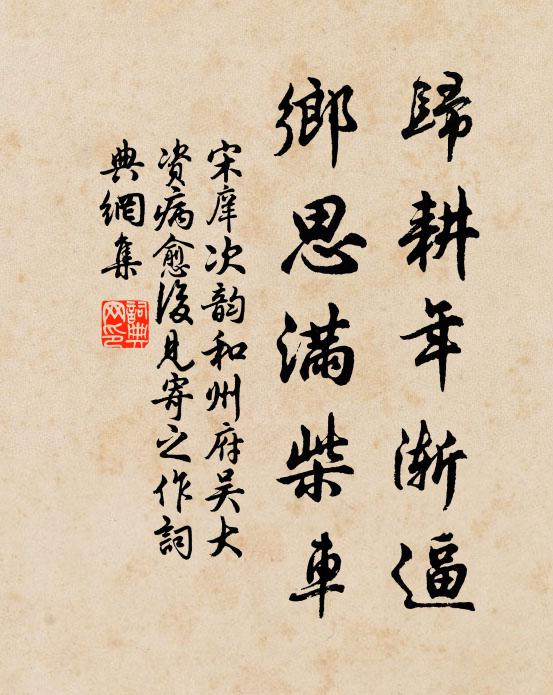 歸耕年漸逼
鄉思滿柴車
宋庠次韵和州府吴大
资病愈後見寄之作詞
典網集
詞典
网印